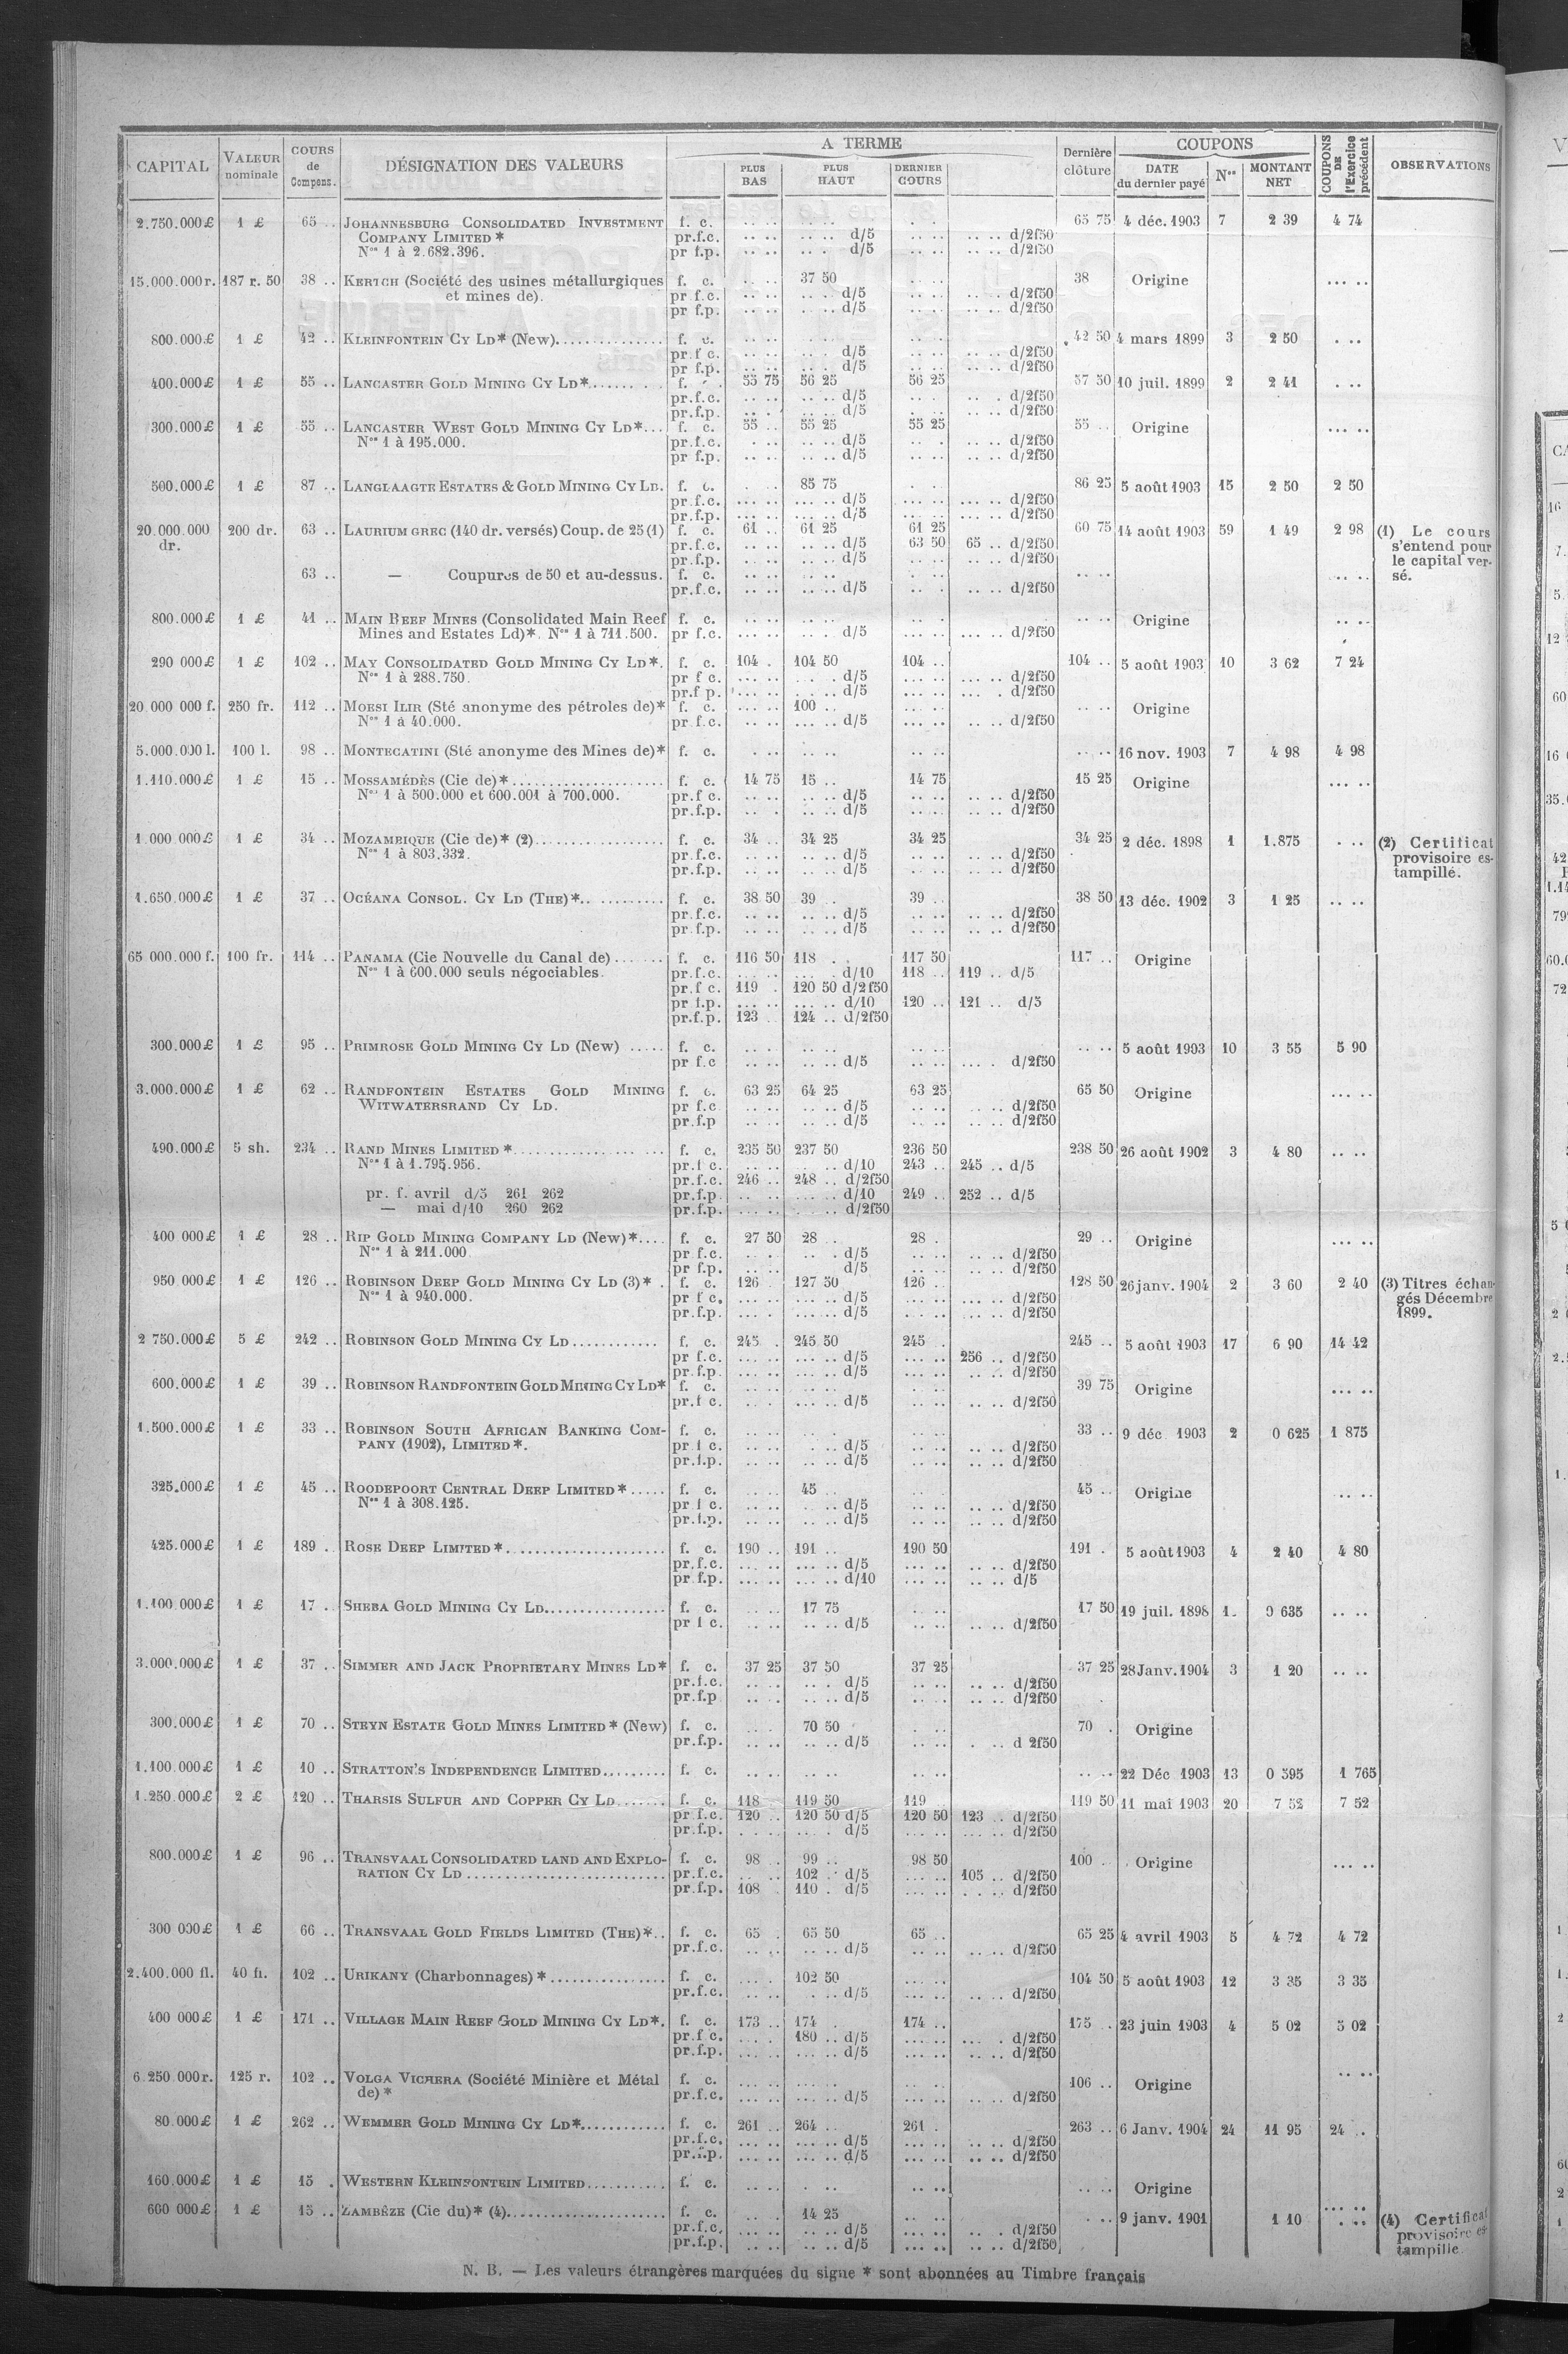 CAPITAL | VALEUR nominale | COURS de Compens. | DÉSIGNATION DES VALEURS | A TERME | PLUS BAS | PLUS HAUT | DERNIER COURS | Dernière clôture | COUPONS | DATE du dernier payé | Nos | MONTANT NET | COUPONS DE l'Exercice précédent | OBSERVATIONS
2.750.000£ 1 £ 65 .. JOHANNESBURG CONSOLIDATED INVESTMENT f. c. .. .. .. .. 65 75 4 déc. 1903 7 2 39 4 74
COMPANY LIMITED * pr.f.c. .. .. .. .. d/5 .. .. .. .. d/2f50
Nos 1 à 2.682.396. pr f.p. .. .. .. . d/5 .. .. .. .. d/2f50
15.000.000r. 187 r. 50 38 .. KERTCH (Société des usines métallurgiques f. c. .. .. 37 50 .. .. 38 Origine ... ..
et mines de). pr f.c. .. .. .. . d/5 .. .. .. .. d/2f50
pr f.p. .. .. .. .. d/5 .. .. .. .. d/2f50
800.000£ 1 £ 42 .. KLEINFONTEIN CY LD* (New).............. f. c. .. .. .. .. .. .. 42 50 4 mars 1899 3 2 50 . ..
pr.f c. .. .. .. . d/5 .. .. .. .. d/2f50
pr f.p. .. .. .. . d/5 .. .. .. .. d/2f50
400.000£ 1 £ 55 .. LANCASTER GOLD MINING CY LD*........ f. 55 75 56 25 56 25 57 50 10 juil. 1899 2 2 41 . ..
pr.f.c. .. .. .. .. d/5 .. .. .. . d/2f50
pr.f.p. .. . .. .. d/5 . .. .. .. d/2f50
300.000£ 1 £ 55 .. LANCASTER WEST GOLD MINING CY LD*... f. c. 55 .. 55 25 55 25 55 .. Origine ... ..
Nos 1 à 195.000. pr.f.c. . .. .. .. d/5 .. . .. .. d/2f50
pr f.p. .. .. .. .. d/5 .. .. .. .. d/2f50
500.000£ 1 £ 87 .. LANGLAAGTE ESTATES & GOLD MINING CY LD. f. c. . . 85 75 . . 86 25 5 août 1903 15 2 50 2 50
pr.f.c. ... .. ... .. d/5 ... .. ... .. d/2f50
pr.f.p. ... .. ... .. d/5 ... .. ... .. d/2f50
20.000.000 dr. 200 dr. 63 .. LAURIUM GREC (140 dr. versés) Coup. de 25 (1) f. c. 61 .. 61 25 61 25 60 75 14 août 1903 59 1 49 2 98 (1) Le cours
pr.f.c. .. .. .. .. d/5 63 50 65 .. d/2f50 s'entend pour
pr.f.p. .. .. .. .. d/5 .. .. .. .. d/2f50 le capital ver-
63 .. — Coupures de 50 et au-dessus. f. c. .. .. .. .. . .. .. .. .. .. sé.
pr.f.c. .. .. .. .. d/5 .. . .. .. d/2f50
800.000£ 1 £ 41 .. MAIN REEF MINES (Consolidated Main Reef f. c. .. .. .. .. .. .. .. .. Origine .. ..
Mines and Estates Ld)*. Nos 1 à 711.500. pr f.c. ... .. .. . d/5 ... .. ... .. d/2f50
290 000£ 1 £ 102 .. MAY CONSOLIDATED GOLD MINING CY LD*. f. c. 104 . 104 50 104 .. 104 .. 5 août 1903 10 3 62 7 24
Nos 1 à 288.750. pr f c. ... .. . . . d/5 ... .. ... .. d/2f50
pr.f p. ... .. .. . d/5 ... .. ... . d/2f50
20 000 000 f. 250 fr. 112 .. MOESI ILIR (Sté anonyme des pétroles de)* f. c. ... .. 100 .. ... .. .. .. Origine
Nos 1 à 40.000. pr.f.c. .. .. ... .. d/5 ... .. .. .. d/2f50
5.000.000 l. 100 l. 98 .. MONTECATINI (Sté anonyme des Mines de)* f. c. . .. .. .. .. .. .. .. 16 nov. 1903 7 4 98 4 98
1.110.000£ 1 £ 15 .. MOSSAMÉDÈS (Cie de)*.................... f. c. 14 75 15 .. 14 75 15 25 Origine ... ..
Nos 1 à 500.000 et 600.001 à 700.000. pr.f c. .. .. .. .. d/5 .. .. .. .. d/2f50
pr.f.p. .. . .. .. d/5 .. .. .. .. d/2f50
1 000 000£ 1 £ 34 .. MOZAMBIQUE (Cie de)* (2)................. f. c. 34 .. 34 25 34 25 34 25 2 déc. 1898 1 1.875 . .. (2) Certificat
Nos 1 à 803.332. pr.f.c. .. .. .. .. d/5 .. .. .. .. d/2f50 provisoire es-
pr.f.p. .. .. .. .. d/5 .. .. .. .. d/2f50 tampillé.
1.650 000£ 1 £ 37 .. OCÉANA CONSOL. CY LD (THE)*............ f. c. 38 50 39 .. 39 .. 38 50 13 déc. 1902 3 1 25 .. ..
pr.f.c. .. .. .. .. d/5 .. .. .. .. d/2f50
pr.f.p. .. .. .. .. d/5 .. .. .. .. d/2f50
65 000.000 f. 100 fr. 114 .. PANAMA (Cie Nouvelle du Canal de)....... f. c. 116 50 118 . . 117 50 117 .. Origine
Nos 1 à 600.000 seuls négociables. pr.f.c. ... .. d/10 118 .. 119 .. d/5
pr.f c. 119 . 120 50 d/2f50
pr f.p. ... .. ... .. d/10 120 .. 121 .. d/5
pr.f.p. 123 .. 124 .. d/2f50
300.000£ 1 £ 95 .. PRIMROSE GOLD MINING CY LD (New) ..... f. c. .. .. .. .. .. .. .. .. 5 août 1903 10 3 55 5 90
pr f.c .. .. .. .. d/5 .. .. ... . d/2f50
3.000.000£ 1 £ 62 .. RANDFONTEIN ESTATES GOLD MINING f. c. 63 25 64 25 63 25 65 50 Origine ... ..
WITWATERSRAND CY LD. pr f.c .. .. .. .. d/5 .. .. .. .. d/2f50
pr.f.p .. .. .. .. d/5 .. .. .. .. d/2f50
490.000£ 5 sh. 234 .. RAND MINES LIMITED *................... f. c. 235 50 237 50 236 50 238 50 26 août 1902 3 4 80 .. ..
Nos 1 à 1.795.956. pr.f c. .. . .. d/10 243 .. 245 .. d/5
pr.f.c. 246 .. 248 .. d/2f50
pr. f. avril d/5 261 262 pr.f.p. .. .. .. .. d/10 249 .. 252 .. d/5
— mai d/10 260 262 pr.f.p. ... .. .. .. d/2f50
400 000£ 1 £ 28 .. RIP GOLD MINING COMPANY LD (New)*.... f. c. 27 50 28 .. 28 . 29 .. Origine ... ..
Nos 1 à 211.000. pr f.c. .. .. .. . d/5 .. .. .. .. d/2f50
pr f.p. .. .. d/5 .. .. .. .. d/2f50
950.000£ 1 £ 126 .. ROBINSON DEEP GOLD MINING CY LD (3)* . f. c. 126 . 127 50 126 .. 128 50 26 janv. 1904 2 3 60 2 40 (3) Titres échan-
Nos 1 à 940.000. pr f c. ... .. ... .. d/5 ... .. ... .. d/2f50 gés Décembre
pr.f.p. ... .. ... .. d/5 ... .. .. .. d/2f50 1899.
2 750.000£ 5 £ 242 .. ROBINSON GOLD MINING CY LD............ f. c. 245 . 245 50 245 . 245 .. 5 août 1903 17 6 90 14 42
pr f.c. ... .. ... .. d/5 ... .. 256 .. d/2f50
pr.f.p. ... .. ... .. d/5 ... .. .. .. d/2f50
600.000£ 1 £ 39 .. ROBINSON RANDFONTEIN GOLD MINING CY LD* f. c. .. .. .. .. .. .. 39 75 Origine ... ..
pr.f c. .. .. ... .. d/5 .. .. .. .. d/2f50
1.500.000£ 1 £ 33 .. ROBINSON SOUTH AFRICAN BANKING COM- f. c. .. .. .. .. .. .. 33 .. 9 déc 1903 2 0 625 1 875
PANY (1902), LIMITED *. pr f c. .. .. . .. d/5 .. .. .. .. d/2f50
pr.f.p. .. .. .. .. d/5 .. .. .. .. d/2f50
325.000£ 1 £ 45 .. ROODEPOORT CENTRAL DEEP LIMITED *..... f. c. .. .. 45 .. .. .. 45 .. Origine .. ..
Nos 1 à 308.125. pr f c. .. .. .. .. d/5 .. .. .. .. d/2f50
pr.f.p. .. .. .. .. d/5 .. .. .. .. d/2f50
425.000£ 1 £ 189 . ROSE DEEP LIMITED *..................... f. c. 190 .. 191 .. 190 50 191 . 5 août 1903 4 2 40 4 80
pr.f.c. ... .. ... .. d/5 ... .. .. .. d/2f50
pr f.p. ... .. ... .. d/10 ... .. .. .. d/5
1.100.000£ 1 £ 17 . SHEBA GOLD MINING CY LD................ f. c. .. .. 17 75 .. .. 17 50 19 juil. 1898 1. 0 635 .. ..
pr f c. .. .. .. .. d/5 .. .. .. .. d/2f50
3.000.000£ 1 £ 37 .. SIMMER AND JACK PROPRIETARY MINES LD* f. c. 37 25 37 50 37 25 37 25 28 Janv. 1904 3 1 20 .. ..
pr.f.c. .. .. .. . d/5 .. .. .. .. d/2f50
pr.f.p .. . .. .. d/5 .. .. .. .. d/2f50
300.000£ 1 £ 70 .. STEYN ESTATE GOLD MINES LIMITED * (New) f. c. .. . 70 50 . .. 70 . Origine
pr.f.p. .. .. .. .. d/5 .. .. . .. d 2f50
1.100.000£ 1 £ 10 .. STRATTON'S INDEPENDENCE LIMITED......... f. c. .. .. .. .. .. .. .. .. 22 Déc 1903 13 0 595 1 765
1.250.000£ 2 £ 120 .. THARSIS SULFUR AND COPPER CY LD....... f. c. 118 .. 119 50 119 .. 119 50 11 mai 1903 20 7 52 7 52
pr.f.c. 120 .. 120 50 d/5 120 50 123 .. d/2f50
pr.f.p. . . .. .. . d/5 ... .. ... .. d/2f50
800.000£ 1 £ 96 .. TRANSVAAL CONSOLIDATED LAND AND EXPLO- f. c. 98 . 99 .. 98 50 100 . Origine ... ..
RATION CY LD .......................... pr.f.c. .. .. 102 .. d/5 ... .. 105 .. d/2f50
pr.f.p. 108 . 110 . d/5 ... .. . . .. d/2f50
300 000£ 1 £ 66 .. TRANSVAAL GOLD FIELDS LIMITED (THE)*.. f. c. 65 . 65 50 65 .. 65 25 4 avril 1903 5 4 72 4 72
pr.f.c. .. .. .. .. d/5 .. .. .. .. d/2f50
2.400.000 fl. 40 fl. 102 .. URIKANY (Charbonnages) *............... f. c. ... . 102 50 ... .. 104 50 5 août 1903 12 3 35 3 35
pr.f.c. .. .. . .. d/5 ... .. .. .. d/2f50
400 000£ 1 £ 171 .. VILLAGE MAIN REEF GOLD MINING CY LD*. f. c. 173 .. 174 . 174 .. 175 . 23 juin 1903 4 5 02 5 02
pr.f c. ... . 180 .. d/5 ... .. ... . d/2f50
pr.f.p. ... .. ... .. d/5 ... .. .. .. d/2f50
6 250 000r. 125 r. 102 .. VOLGA VICHERA (Société Minière et Métal f. c. ... .. ... .. .. .. 106 .. Origine .. ..
de) * pr.f.c. ... .. ... .. d/5 ... .. .. .. d/2f50
80.000£ 1 £ 262 .. WEMMER GOLD MINING CY LD*........... f. c. 261 .. 264 .. 261 . 263 .. 6 Janv. 1904 24 11 95 24 ..
pr.f.c. ... .. ... .. d/5 ... .. .. .. d/2f50
pr.f.p. ... .. ... .. d/5 ... .. .. .. d/2f50
160.000£ 1 £ 15 . WESTERN KLEINFONTEIN LIMITED........... f. c. .. .. . .. .. .. .. .. Origine
600 000£ 1 £ 15 .. ZAMBÈZE (Cie du)* (4)..................... f. c. .. . 14 25 .. .. . .. 9 janv. 1901 1 10 . .. (4) Certificat
pr.f.c. .. .. .. .. d/5 ... .. .. . d/2f50 provisoire es-
pr.f.p. .. .. .. .. d/5 ... .. .. .. d/2f50 tampille
N. B. — Les valeurs étrangères marquées du signe * sont abonnées au Timbre français